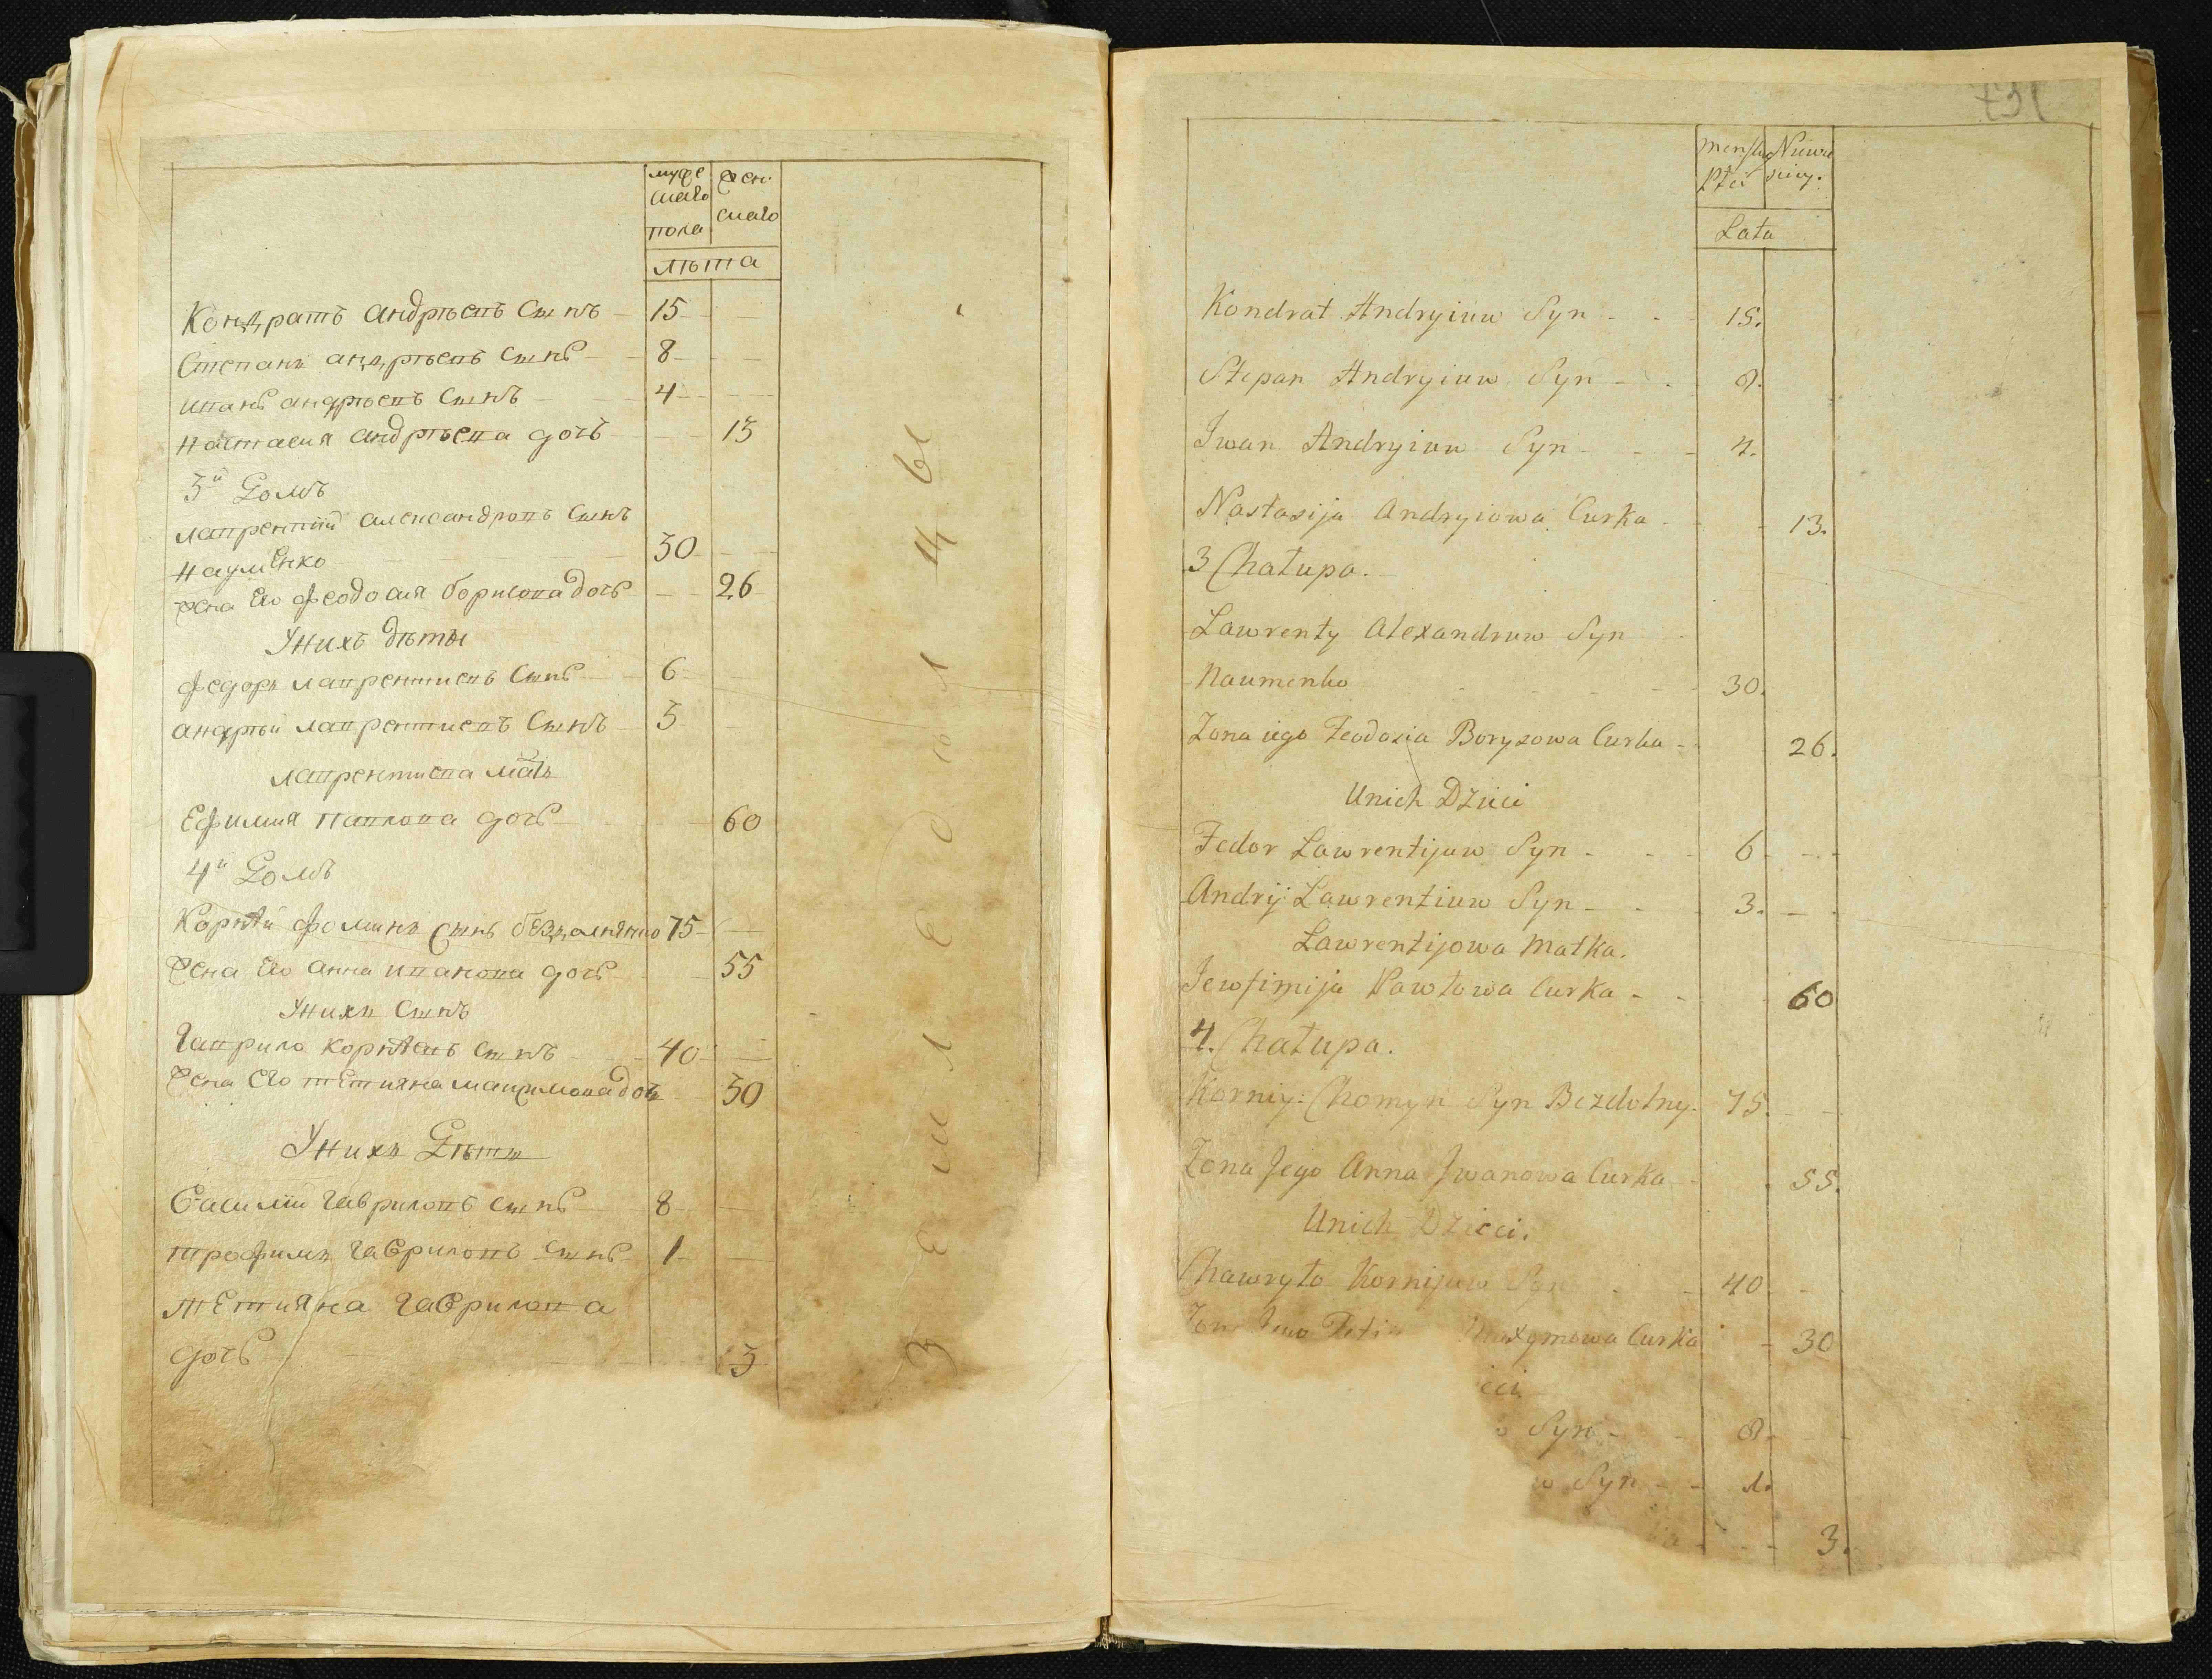 мужескаго пола
женскаго
лѣта
Кондратъ андрѣевъ сынъ 15
Степанъ андрѣевъ сынъ 8
иванъ андрѣевъ сынъ 4
настасия андрѣева дочь 13
3й Домъ
лаврентий александровъ сынъ
науменко 30
жена его феодосия борисова дочь 26
У нихъ дѣты
федоръ лаврентиевъ сынъ 6
андрѣй лаврентиевъ сынъ 3
лаврентиева мать
Ефимия павлова дочь 60
4й Домъ
Корнѣй фоминъ сынъ 75
жена его анна иванова дочь 55
У нихъ сынъ
гаврило корнѣевъ сынъ 40
жена его тетияна максимова дочь 30
У нихъ Дѣты
василий гавриловъ сынъ 8
трофимъ гавриловъ сынъ 1
тетияна гаврилова
дочь 3
земледелцы
731
Lata
Kondrat Andryiuw Syn 15.
Stepan Andryiuw Syn 8.
Iwan Andryiuw Syn 4.
Nastasija Andryiowa Curka 13.
3 Chałupa.
Lawrenty Alexandruw Syn
Naumenko 30.
Zona iego Feodosia Borysowa Curka 26.
Unich Dzieci
Fedor Lawrentijuw Syn 6
Andrij Lawrentiuw Syn 3.
Lawrentijowa Matka.
Jewfimija Pawłowa Curka 60
4. Chałupa.
Korniy Chomyn Syn Bezdolny 75.
Zona Jego Anna Iwanowa Curka 55.
Unich Dzieci.
Chawryło Kornijuw Syn 40
Maxymowa Curka 30
Syn 8.
Syn 1.
3.